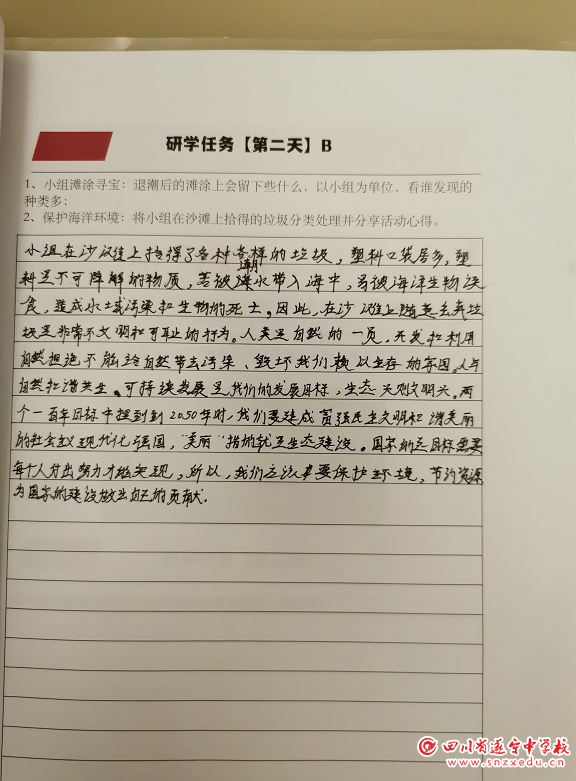 研学任务【第二天】B
1、小组滩涂寻宝：退潮后的滩涂上会留下些什么，以小组为单位，看谁发现的
种类多；
2、保护海洋环境：将小组在沙滩上拾得的垃圾分类处理并分享活动心得。
小组在沙滩上拾得了各种各样的垃圾，塑料口袋居多，塑
料是不可降解的物质，若被潮水带入海中，易被海洋生物误
食，造成水域污染和生物的死亡。因此，在沙滩上随意丢弃垃
圾是非常不文明和可耻的行为。人类是自然的一员，开发和利用
自然但绝不能给自然带去污染、毁坏我们赖以生存的家园。人与
自然和谐共生、可持续发展是我们的发展目标，生态兴则文明兴。两
个一百年目标中提到到2050年时，我们要建成富强民主文明和谐美丽
的社会主义现代化强国，“美丽”指的就是生态建设。国家的远目标需要
每个人付出努力才能实现，所以，我们应该要保护环境，节约资源
为国家的建设做出自己的贡献。
四川省遂宁中学校
www.snzxedu.cn